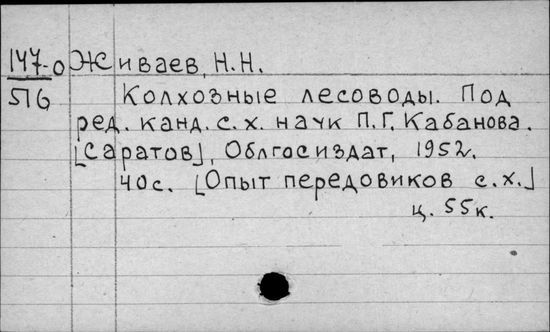 147-о Живаев, Н.Н.
516 Колхозные лесоводы. Под
ред. канд. с. х. наук П.Г. Кабанова.
[Саратов], Облгосиздат, 1952.
40с. [Опыт передовиков с.х.]
ц. 55к.